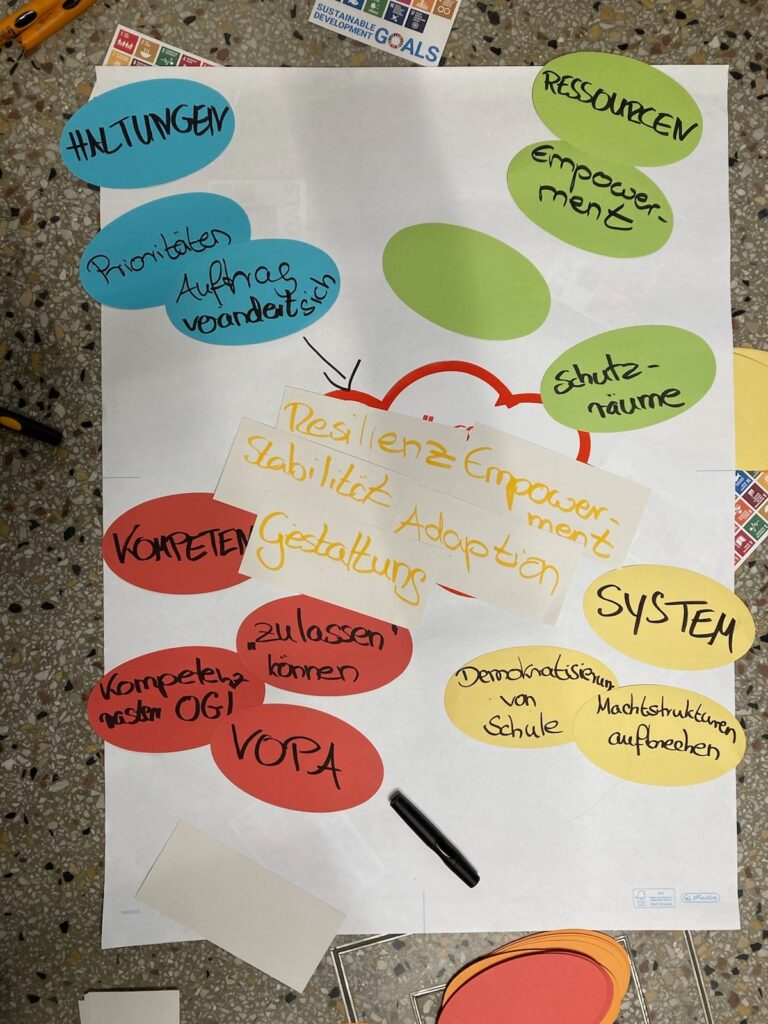 SUSTAINABLE
DEVELOPMENT
GOALS
HALTUNGEN
Prioritäten
Auftrag
verändert sich
RESSOURCEN
Empower-
ment
Schutz-
räume
Resilienz
Empower-
ment
Stabilität
Adaption
Gestaltung
KOMPETEN
„zulassen"
können
Kompetenz
raster OGI
VOPA
SYSTEM
Demokratisierung
von
Schule
Machtstrukturen
aufbrechen